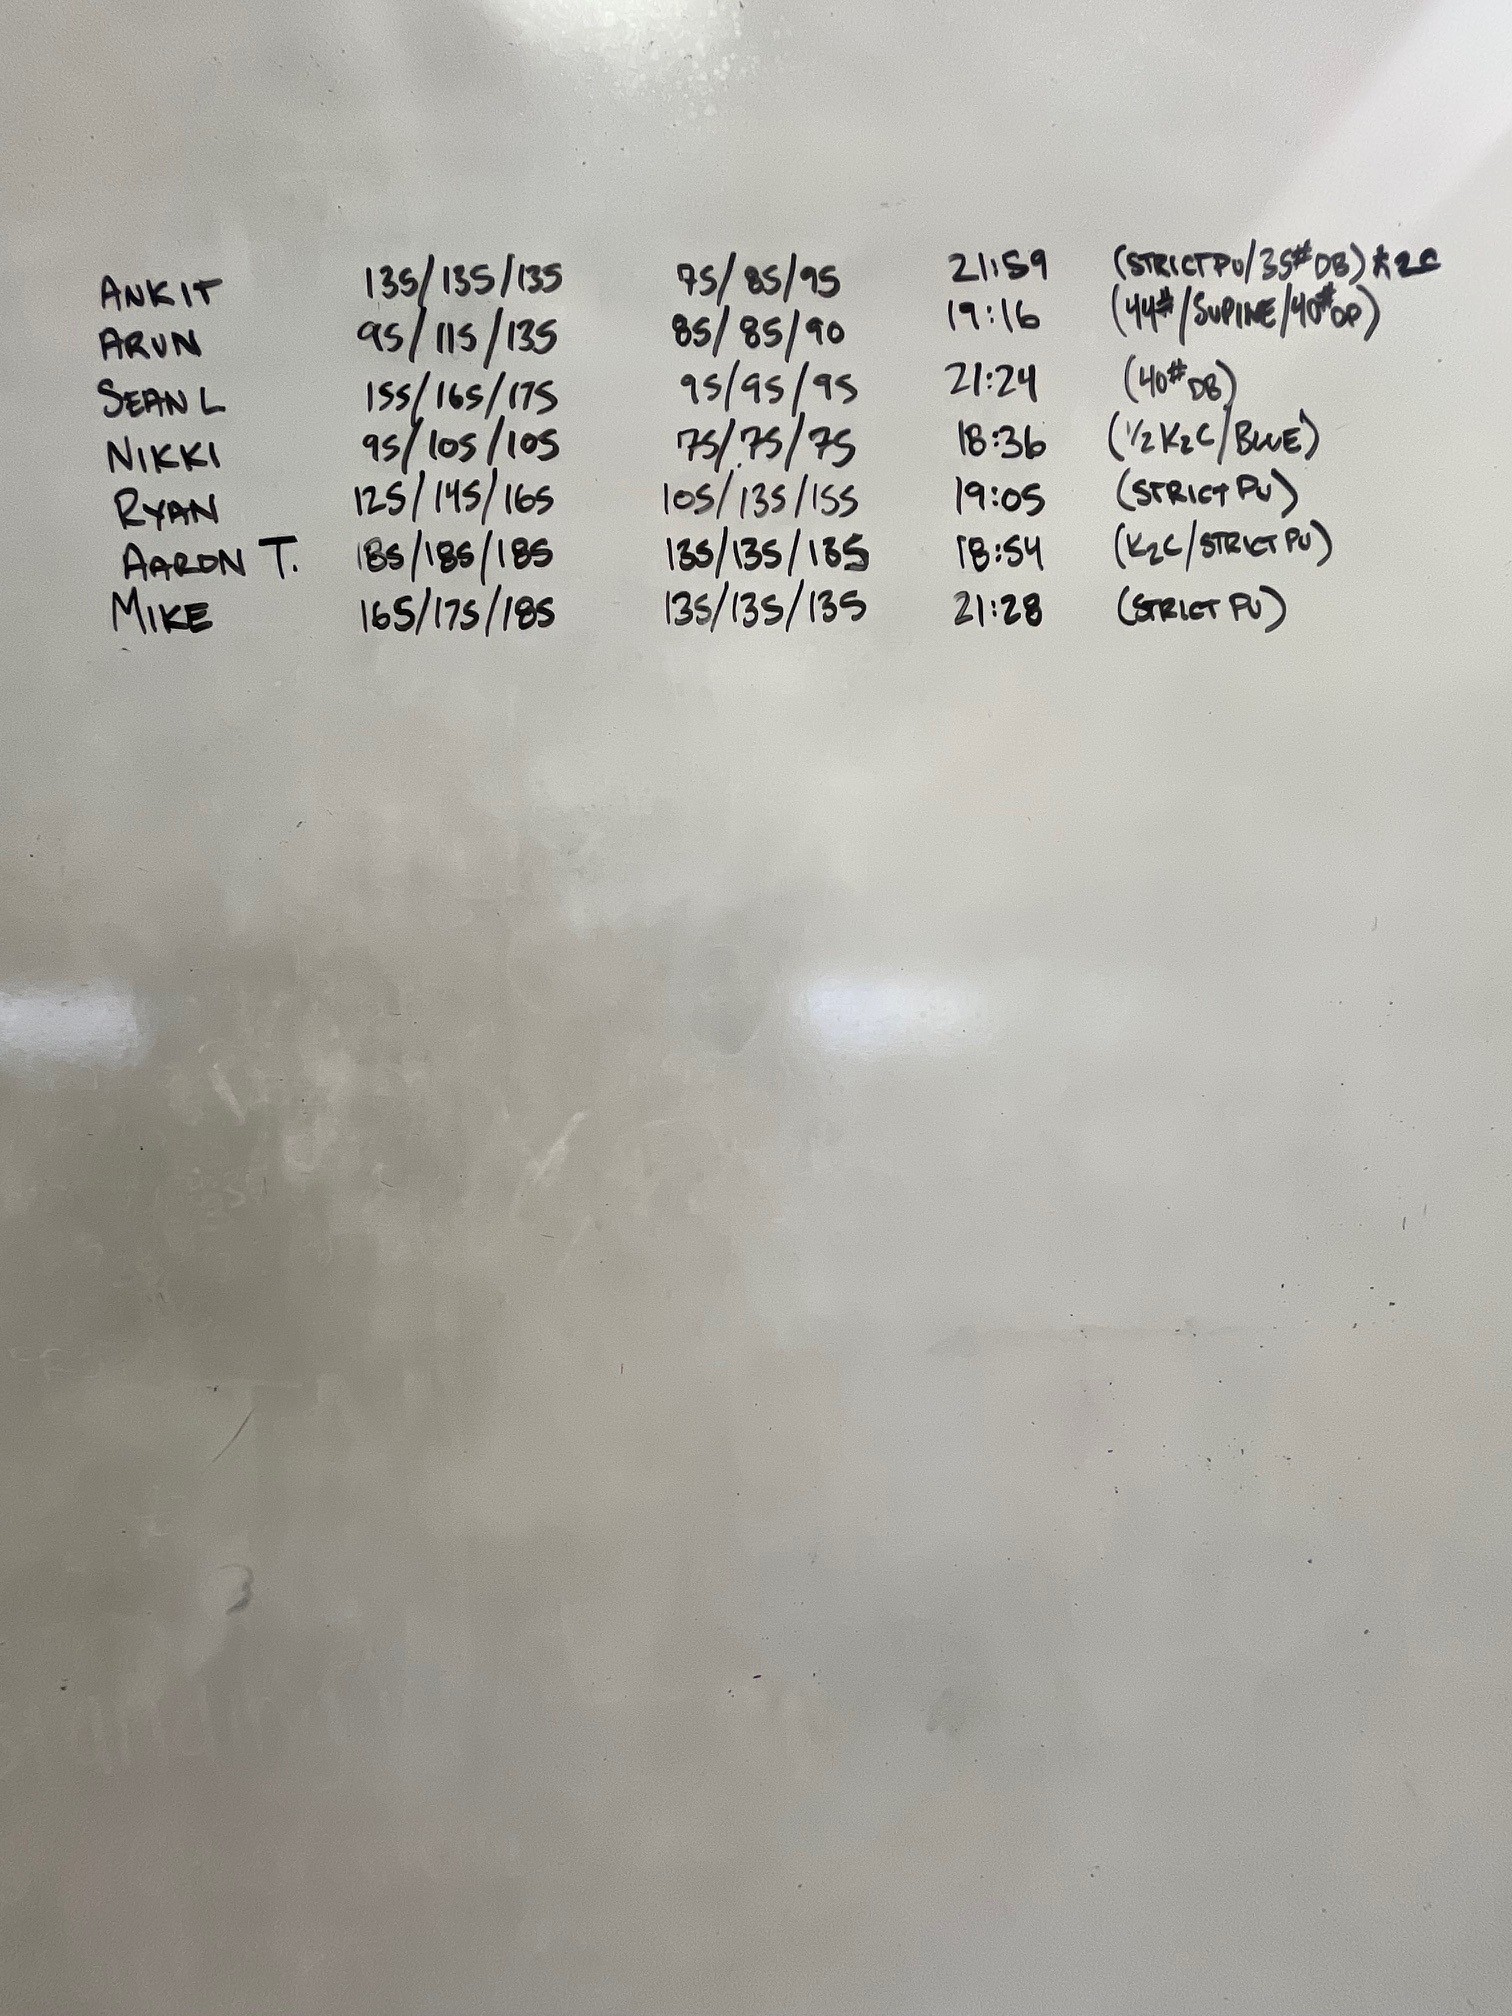 ANKIT 135/135/135 75/85/95 21:59 (STRICT PU/35# DB)
ARUN 95/115/135 85/85/90 19:16 (44#/SUPINE/40# DB)
SEAN L 155/165/175 95/95/95 21:24 (40# DB)
NIKKI 95/105/105 75/75/75 18:36 (1/2 K2C/BLUE)
RYAN 125/145/165 105/135/155 19:05 (STRICT PU)
AARON T. 185/185/185 135/135/135 18:54 (K2C/STRICT PU)
MIKE 165/175/185 135/135/135 21:28 (STRICT PU)